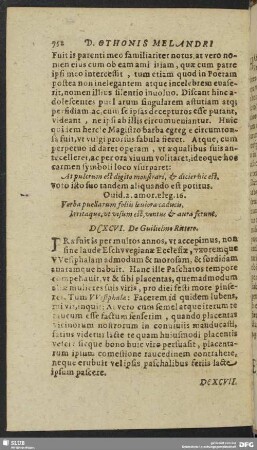 752 D. OTHONIS MELANDRI
Fuit is parenti meo familiariter notus, at vero no-
men eius cum ob eam amicitiam, quæ cum patre
ipsi meo intercessit, tum etiam quod in Poetam
postea non inelegantem atque incelebrem euase-
rit, nomen illius silentio inuoluo. Discant hinc a-
dolescentes puellarum singularem astutiam atq;
perfidiam ac, cum se ab ipsis decepturos esse putant,
videant, ne ipsi ab illis circumueniantur. Huic
quidem hercle Magistro barba egregie circumro-
sa fuit, vt vulgi prorsus fabula fieret. Atque, cum
perpetuo id daret operam, vt æqualibus suis an-
tecelleret, ac per ora virum volitaret, ideoque hos
carmen symboli loco vsurparet:
At pulcrum est digito monstrari, & dicier hic est,
voto isto suo tandem aliquando est potitus.
Ouid. 2. amor. eleg. 16.
Verba puellarum foliis leuiora caducis,
Irritaque, vt visum est, ventus & aura ferunt.
DCXCVI. De Guilielmo
IRa fuit is per multos annos, vt accepimus, non
sine laude Eschvvegianæ Ecclesiæ, vxoremque
VVestphalam admodum & morosam, & sordidam
auaramque habuit. Hanc ille Paschatos tempore
compellauit, vt & sibi placentas, quemadmodum
aliæ mulieres suis viris, pro diei festi more pinse-
ret. Tum VVestphala: Facerem id quidem lubens,
mi vir, inquit: At vero cum semel atque iterum te
raucum esse factum senserim, quando placentas
vicinorum nostrorum in conuiuiis manducasti,
satius videtur lacte te quam huiusmodi placentis
vesci: sicque bono huic viro persuasit, placenta-
rum ipsum comestione raucedinem contrahere,
neque erubuit vel ipsis paschalibus feriis lacte
ipsum pascere.
DCXCVII.
SLUB